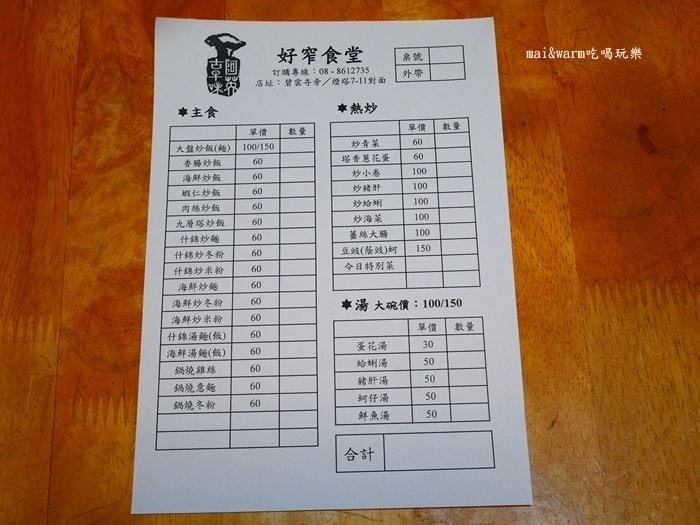 mai&warm吃喝玩樂
阿英
古早味
好窄食堂
訂購專線：08 - 8612735
店址：碧雲寺旁／燈塔7-11對面
桌號
外帶
✱主食
單價 數量
大盤炒飯(麵) 100/150
香腸炒飯 60
海鮮炒飯 60
蝦仁炒飯 60
肉絲炒飯 60
九層塔炒飯 60
什錦炒麵 60
什錦炒冬粉 60
什錦炒米粉 60
海鮮炒麵 60
海鮮炒冬粉 60
海鮮炒米粉 60
什錦湯麵(飯) 60
海鮮湯麵(飯) 60
鍋燒雞絲 60
鍋燒意麵 60
鍋燒冬粉 60
✱熱炒
單價 數量
炒青菜 60
塔香蔥花蛋 60
炒小卷 100
炒豬肝 100
炒蛤蜊 100
炒海菜 100
薑絲大腸 100
豆豉(蔭豉)蚵 150
今日特別菜
✱湯 大碗價：100/150
單價 數量
蛋花湯 30
蛤蜊湯 50
豬肝湯 50
蚵仔湯 50
鮮魚湯 50
合計